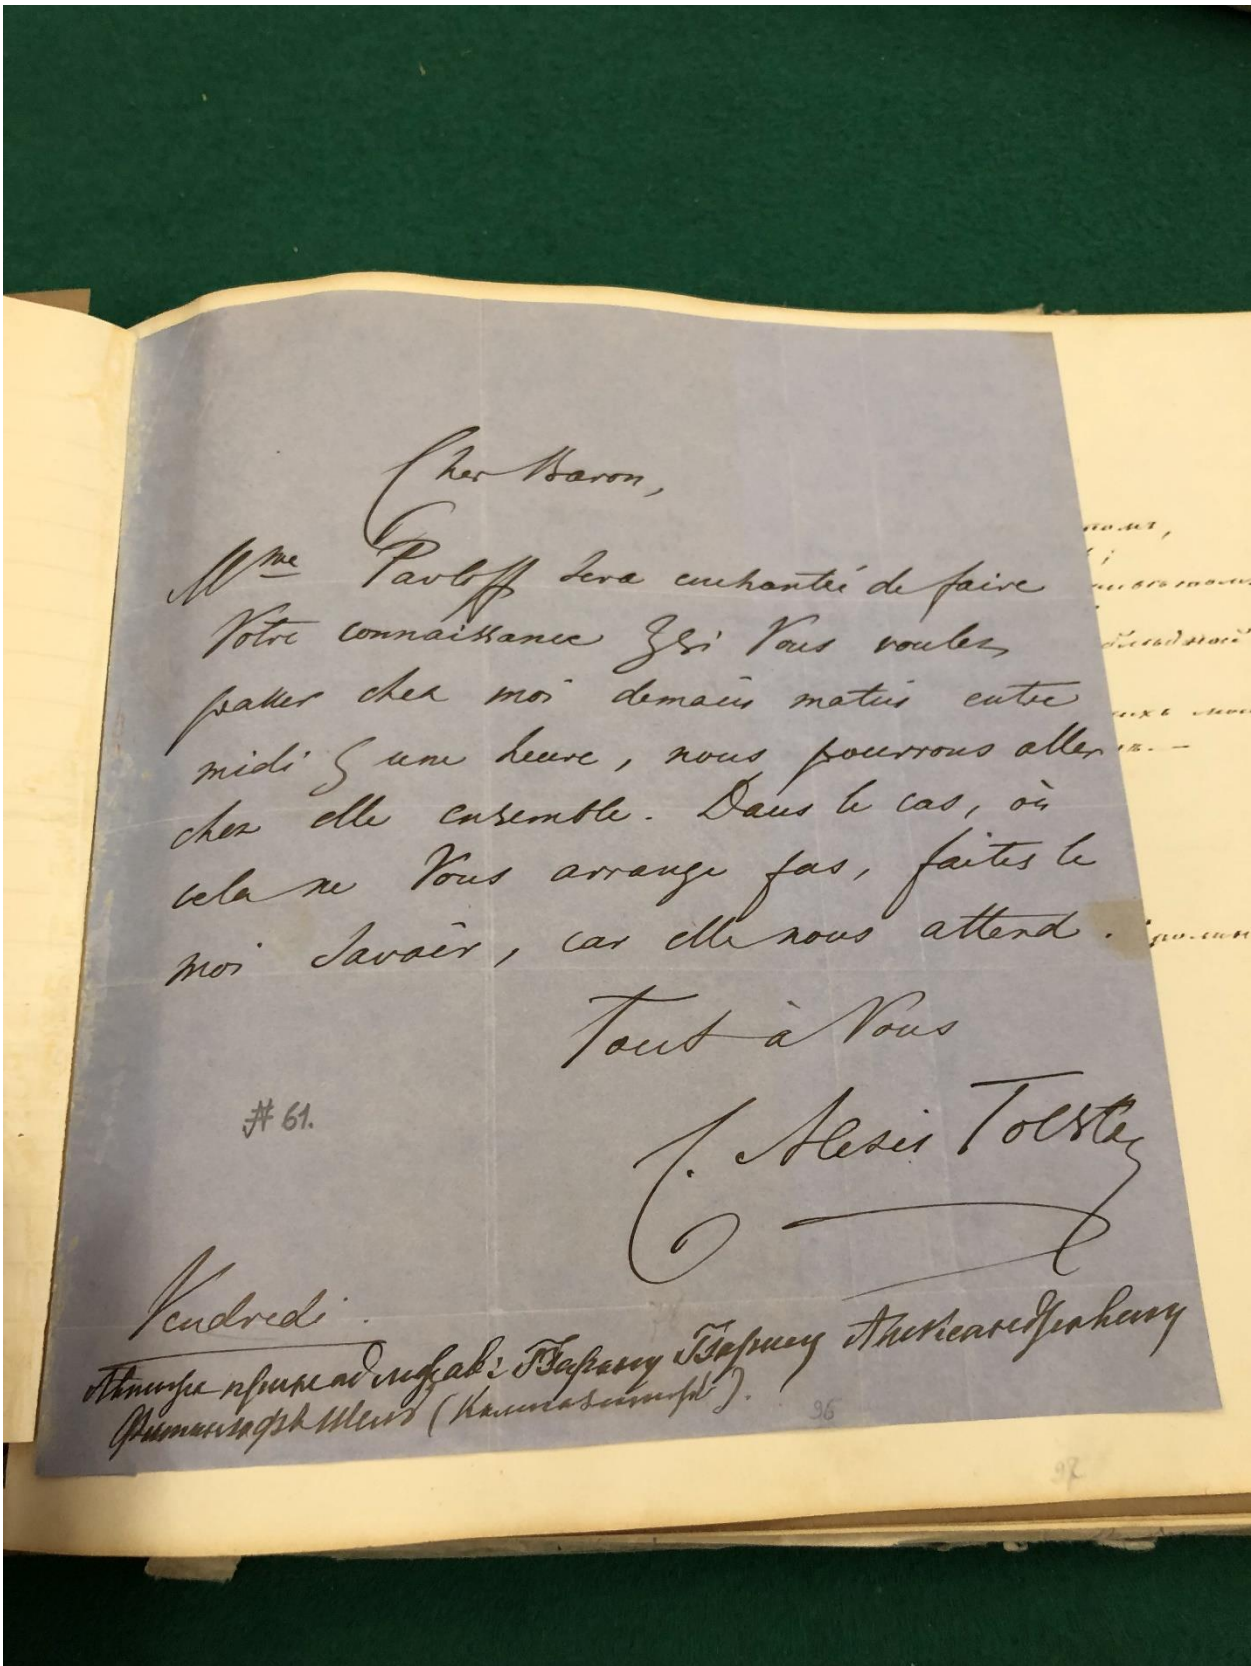 Cher Baron,
Mme Pavloff sera enchantée de faire
Votre connaissance & si Vous voulez
passer chez moi demain matin entre
midi & une heure, nous pourrons aller
chez elle ensemble. Dans le cas, où
cela ne Vous arrange pas, faites le
moi savoir, car elle nous attend.
Tout à Vous
C. Alexis Tolstoy
# 61.
Vendredi.
Барону Борису Александровичу
(Камкамитер).
96
97